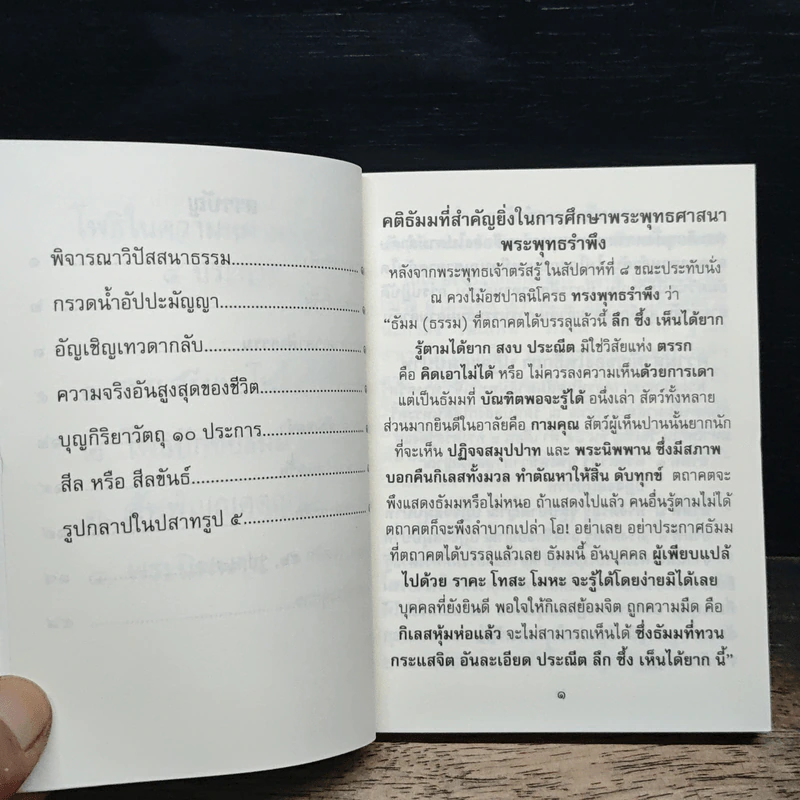 พิจารณาวิปัสสนาธรรม
กรวดน้ำอัปปะมัญญา
อัญเชิญเทวดากลับ
ความจริงอันสูงสุดของชีวิต
บุญกิริยาวัตถุ ๑๐ ประการ
สีล หรือ สีลขันธ์
รูปกลาปในปสาทรูป ๕
คติธัมมที่สำคัญยิ่งในการศึกษาพระพุทธศาสนา
พระพุทธรำพึง
หลังจากพระพุทธเจ้าตรัสรู้ ในสัปดาห์ที่ ๘ ขณะประทับนั่ง
ณ ควงไม้อชปาลนิโครธ ทรงพุทธรำพึง ว่า
“ธัมม (ธรรม) ที่ตถาคตได้บรรลุแล้วนี้ ลึก ซึ้ง เห็นได้ยาก
รู้ตามได้ยาก สงบ ประณีต มิใช่วิสัยแห่ง ตรรก
คือ คิดเอาไม่ได้ หรือ ไม่ควรลงความเห็นด้วยการเดา
แต่เป็นธัมมที่ บัณฑิตพอจะรู้ได้ อนึ่งเล่า สัตว์ทั้งหลาย
ส่วนมากยินดีในอาลัยคือ กามคุณ สัตว์ผู้เห็นปานนั้นยากนัก
ที่จะเห็น ปฏิจจสมุปปาท และ พระนิพพาน ซึ่งมีสภาพ
บอกคืนกิเลสทั้งมวล ทำตัณหาให้สิ้น ดับทุกข์ ตถาคตจะ
พึงแสดงธัมมหรือไม่หนอ ถ้าแสดงไปแล้ว คนอื่นรู้ตามไม่ได้
ตถาคตก็จะพึงลำบากเปล่า โอ! อย่าเลย อย่าประกาศธัมม
ที่ตถาคตได้บรรลุแล้วเลย ธัมมนี้ อันบุคคล ผู้เพียบแปล้
ไปด้วย ราคะ โทสะ โมหะ จะรู้ได้โดยง่ายมิได้เลย
บุคคลที่ยังยินดี พอใจให้กิเลสย้อมจิต ถูกความมืด คือ
กิเลสหุ้มห่อแล้ว จะไม่สามารถเห็นได้ ซึ่งธัมมที่ทวน
กระแสจิต อันละเอียด ประณีต ลึก ซึ้ง เห็นได้ยาก นี้”
๑